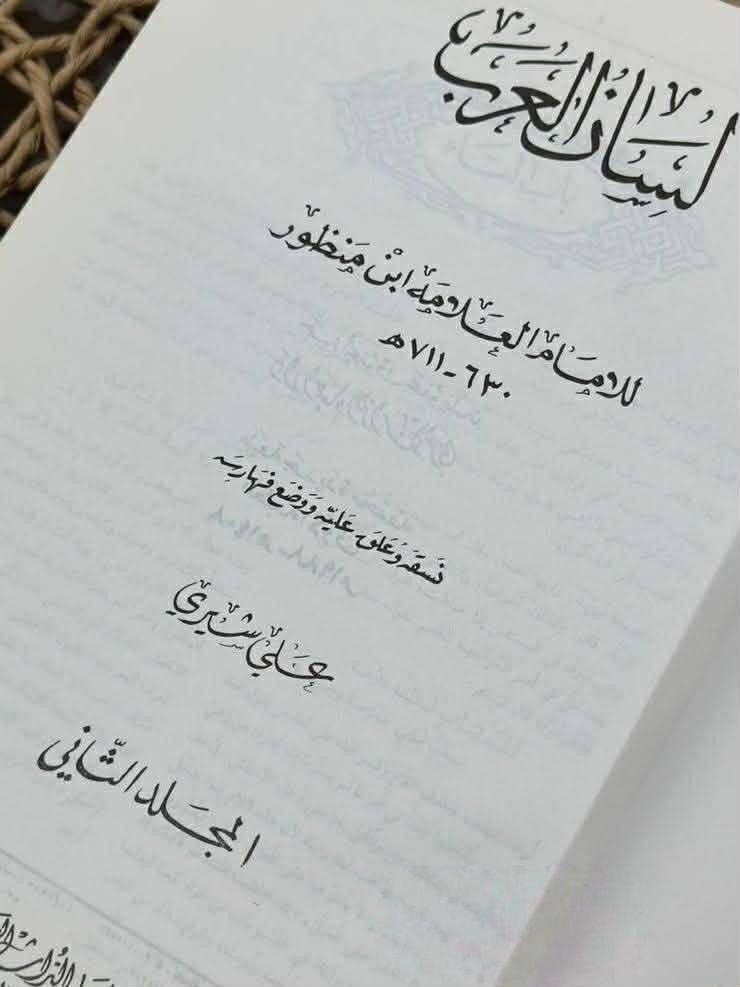 لسان العرب
للإمام العلامة ابن منظور
٦٣٠ - ٧١١ هـ
نسقه وعلق عليه ووضع فهارسه
علي شيري
المجلد الثاني
التراث